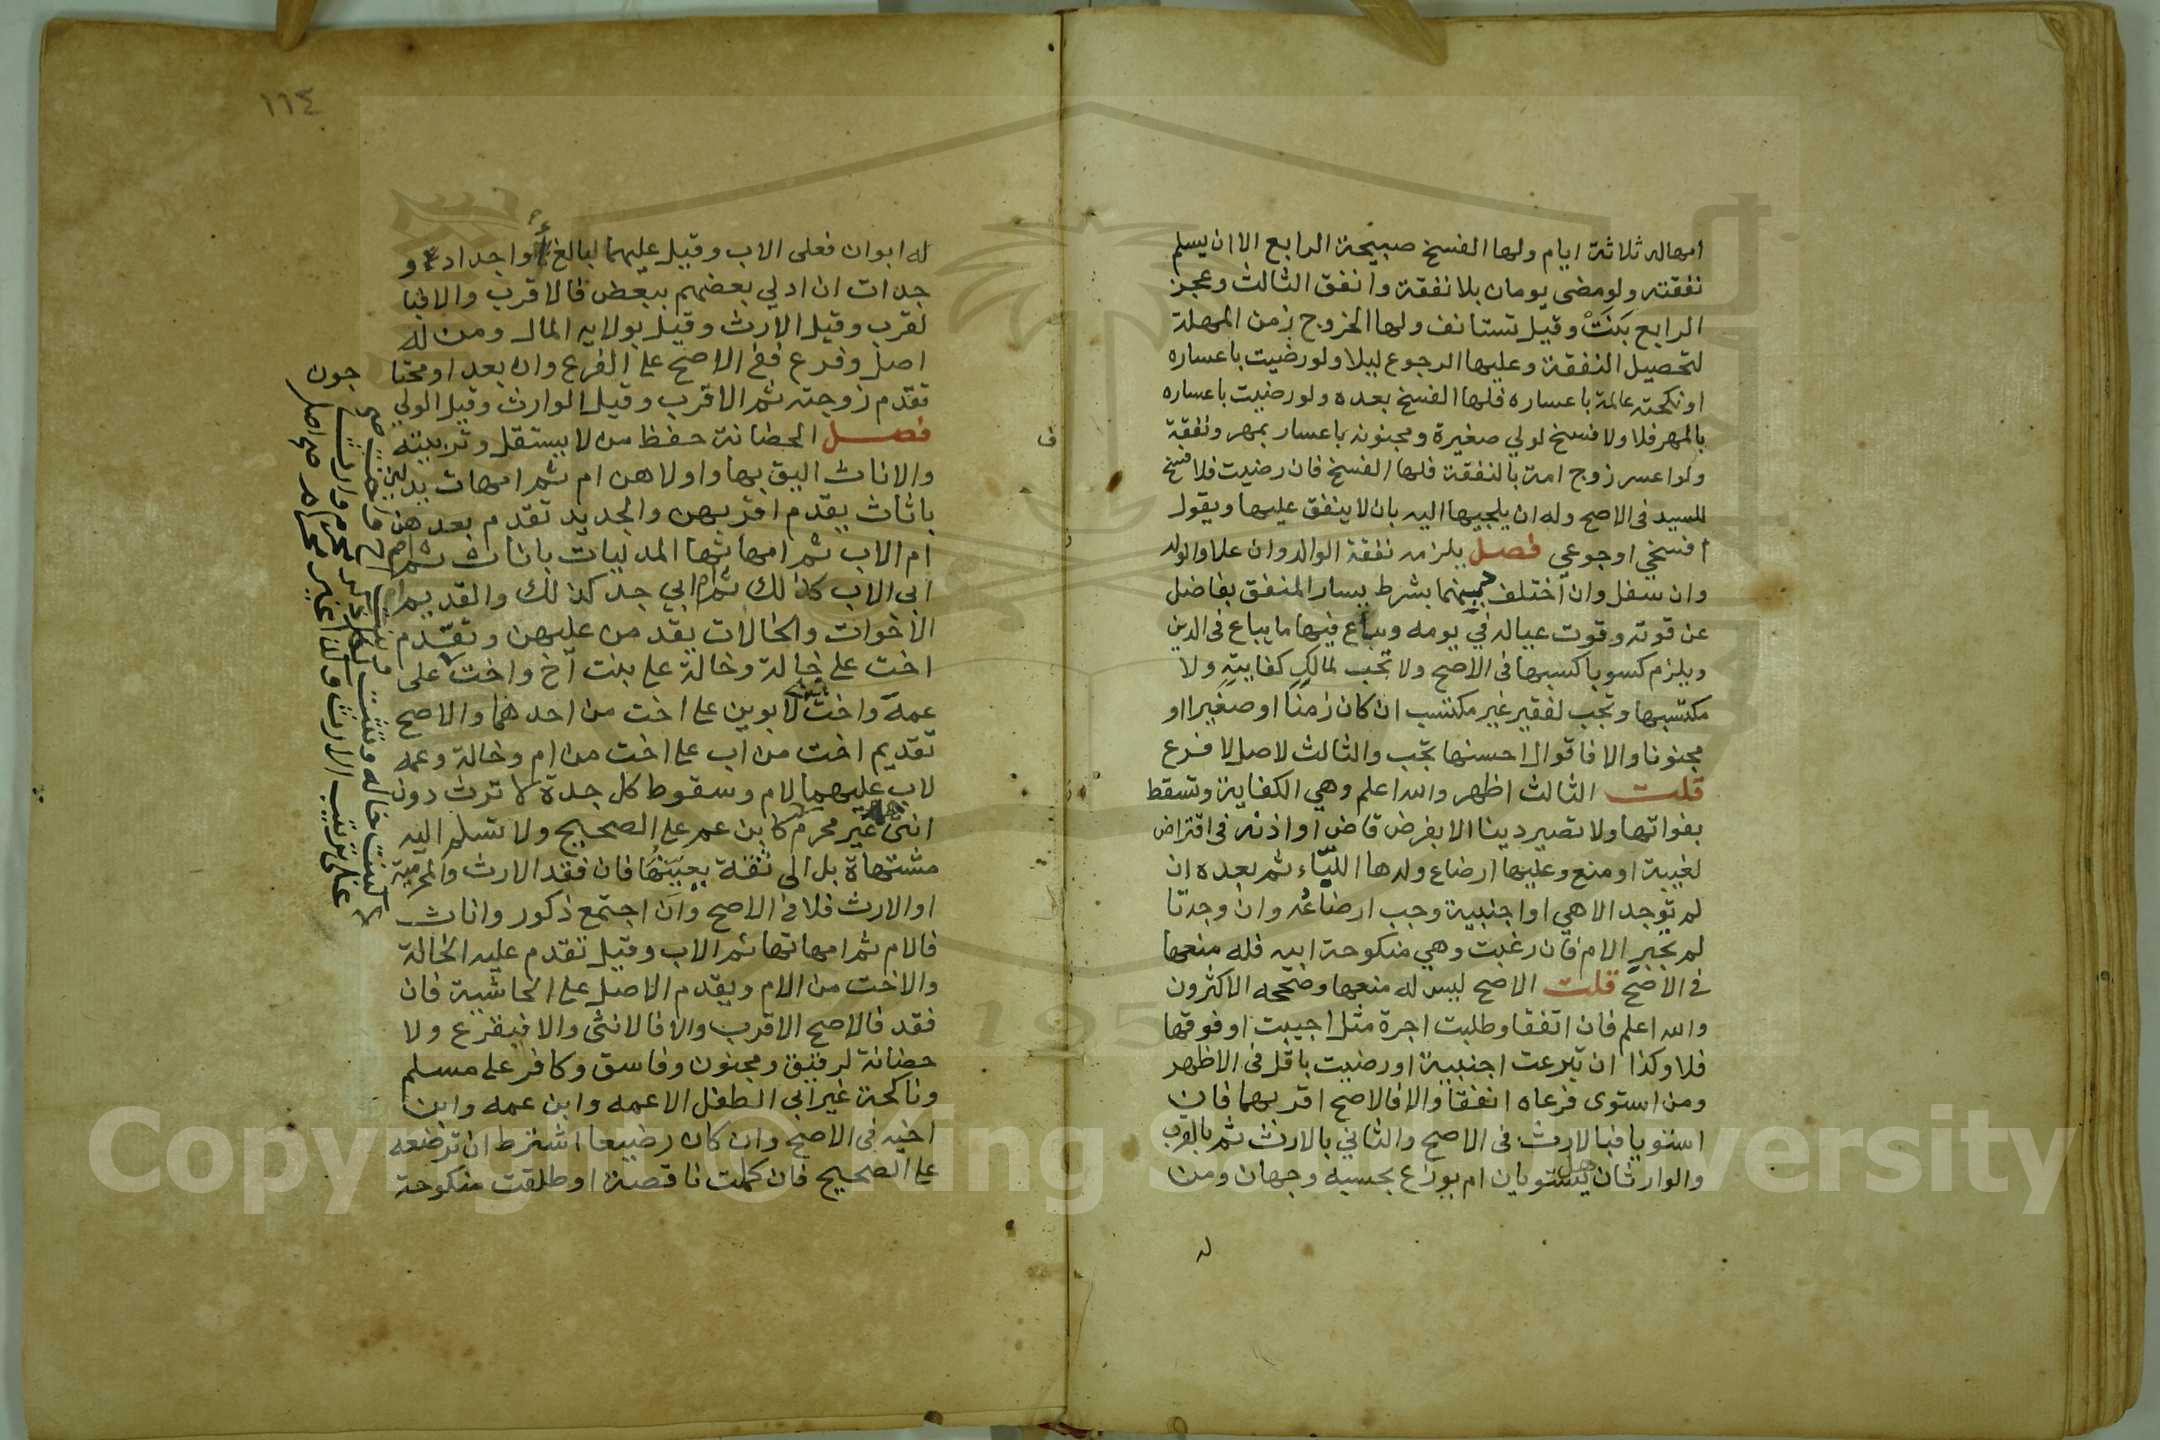 امهاله ثلاثة ايام ولها الفسخ صبيحة الرابع الا ان يسلم
نفقته ولو مضى يومان بلا نفقة وانفق الثالث وعجز
الرابع بنت وقيل تستانف ولها الخروج زمن المهلة
لتحصيل النفقة وعليها الرجوع ليلا ولو رضيت باعساره
او نكحته عالمة باعساره فلها الفسخ بعده ولو رضيت باعساره
بالمهر فلا ولا فسخ لولي صغيرة ومجنونه باعسار بمهر ونفقة
ولو اعسر زوج امة بالنفقة فلها الفسخ فان رضيت فلا فسخ
للسيد في الاصح وله ان يلجيها اليه بان لا ينفق عليها ويقول
افسخي او جوعي فصل يلزمه نفقة الوالد وان علا والولد
وان سفل وان اختلف دينهما بشرط يسار المنفق بفاضل
عن قوته وقوت عياله في يومه ويباع فيها ما يباع في الدين
ويلزم كسوبا كسبها في الاصح ولا تجب لمالك كفايته ولا
مكتسبها وتجب لفقير غير مكتسب ان كان زمنا او صغيرا او
مجنونا والا فاقوال احسنها تجب والثالث لاصل لا فرع
قلت الثالث اظهر والله اعلم وهي الكفاية وتسقط
بفواتها ولا تصير دينا الا بفرض قاض او اذنه في اقتراض
لغيبة او منع وعليها ارضاع ولدها اللباء ثم بعده ان
لم توجد الا هي او اجنبية وجب ارضاعه وان وجدتا
لم تجبر الام فان رغبت وهي منكوحة ابيه فله منعها
في الاصح قلت الاصح ليس له منعها وصححه الاكثرون
والله اعلم فان اتفقا وطلبت اجرة مثل اجيبت او فوقها
فلا وكذا ان تبرعت اجنبية او رضيت باقل في الاظهر
ومن استوى فرعاه انفقا والا فالاصح اقربهما فان
استويا فبالارث في الاصح والثاني بالارث ثم بالقرب
والوارثان هل يستويان ام يوزع بحسبه وجهان ومن
له
١١٤
له ابوان فعلى الاب وقيل عليهما لبالغ او اجداد و
جدات ان ادلي بعضهم ببعض فالاقرب والا فبا
لقرب وقيل الارث وقيل بولايه المال ومن له
اصل وفرع ففي الاصح على الفرع وان بعد او محتا
تقدم زوجته ثم الاقرب وقيل الوارث وقيل الولي
فصل الحضانة حفظ من لا يستقل وتربيته
والاناث اليق بها واولاهن ام ثم امهات يدلين
باناث يقدم اقربهن والجديد تقدم بعدهن
ام الاب ثم امهاتها المدليات باناث ثم ام
ابي الاب كذلك ثم ام ابي جد كذلك والقديم
الاخوات والخالات يقدمن عليهن وتقدم
اخت على خالة وخالة على بنت اخ واخت على
عمة واخت لابوين على اخت من احدهما والاصح
تقديم اخت من اب على اخت من ام وخالة وعمه
لاب عليهما لام وسقوط كل جدة لا ترث دون
انثى غير محرم كابن عم على الصحيح ولا تسلم اليه
مشتهاة بل الى ثقة يعينها فان فقد الارث والمحرمية
او الارث فلا في الاصح وان اجتمع ذكور واناث
فالام ثم امهاتها ثم الاب وقيل تقدم عليه الخالة
والاخت من الام ويقدم الاصل على الحاشية فان
فقد فالاصح الاقرب والا فالانثى والا فيقرع ولا
حضانة لرقيق ومجنون وفاسق وكافر على مسلم
وناكحة غير ابي الطفل الا عمه وابن عمه وابن
اخيه في الاصح وان كان رضيعا اشترط ان ترضعه
على الصحيح فان كملت ناقصة او طلقت منكوحة
على ترتيب الارث وكذا غير محرم
Copyright © King Saud University